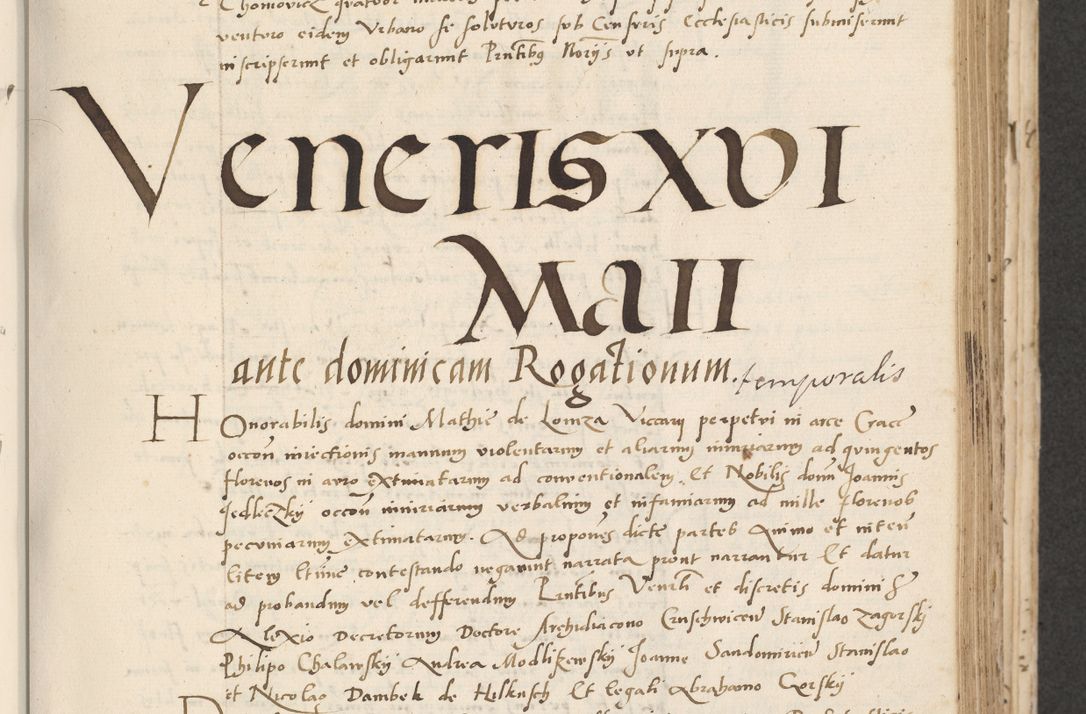 venturo eidem Urbano se soluturos sub Censuris Ecclesiasticis submiserunt
inscripserunt et obligarunt Prntibus Norijs ut supra.
Veneris XVI
Maii
ante dominicam Rogationum. temporalis
Honorabilis domini Mathie de Lomza Viccarij perpetui in arce Cracc
occon iniectionis manuum violentarum et aliarum iniuriarum ad quingentos
florenos in auro extimatarum ad conventionalem. Et Nobilis domi Joannis
Jedleczkij occon iniuriarum verbalium et infamiarum ad mille florenos
pecuniarum extimatarum. Ad propones dicte partes animo et inten
litem ltime contestando negarunt narrata prout narrantur Et datur
ad probandum vel defferendum Prntibus Venerli et discretis domini
Alexio Decretorum Doctore Archidiacono Cruschwicen Stanislao Zagorskij
Philipo Chalawskij Andrea Modliszewskij Joanne Sandomirien Stanislao
et Nicolao Dambek de Hilkusch Et legali Abrahamo Gorskij